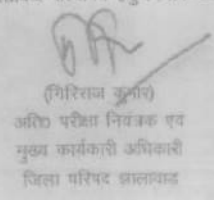 (गिरिराज कुमार)
अति० परीक्षा नियंत्रक एवं
मुख्य कार्यकारी अधिकारी
जिला परिषद झालावाड